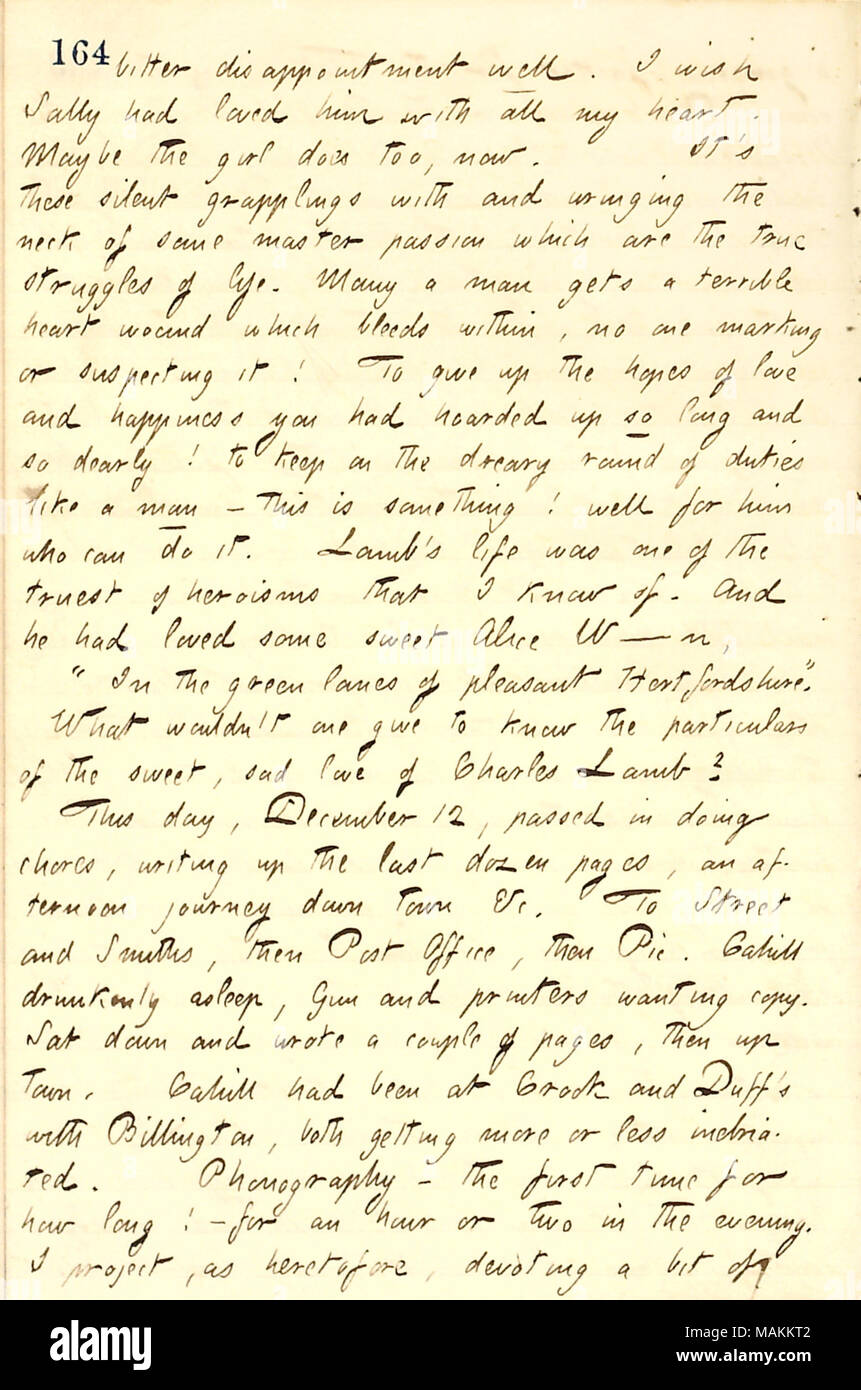 164 bitter disappointment well. I wish
Sally had loved him with all my heart.
Maybe the girl does too, now. It's
these silent grapplings with and wringing the
neck of some master passion which are the true
struggles of life. Many a man gets a terrible
heart wound which bleeds within, no one marking
or suspecting it! To give up the hopes of love
and happiness you had hoarded up so long and
so dearly! to keep on the dreary round of duties
like a man – this is something! well for him
who can do it. Lamb's life was one of the
truest of heroisms that I know of. And
he had loved some sweet Alice W——n,
"In the green lanes of pleasant Hertfordshire".
What wouldn't one give to know the particulars
of the sweet, sad love of Charles Lamb?
This day, December 12, passed in doing
chores, writing up the last dozen pages, an af-
ternoon journey down town &c. To Street
and Smiths, then Post Office, then Pic. Cahill
drunkenly asleep, Gun and printers wanting copy.
Sat down and wrote a couple of pages, then up
town. Cahill had been at Crook and Duff's
with Billington, both getting more or less inebria-
ted. Phonography – the first time for
how long! – for an hour or two in the evening.
I project, as heretofore, devoting a bit of
alamy
Image ID: MAKKT2
www.alamy.com